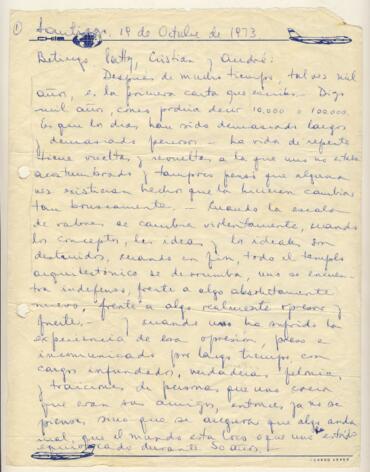 ①
Santiago, 19 de Octubre de 1973
Betungo, Patty, Cristian y André:
Después de mucho tiempo, tal vez mil
años, es la primera carta que escribo. Digo
mil años, como podría decir 10.000 o 100.000.
Es que los días han sido demasiado largos
y demasiado penosos. - La vida de repente
tiene vueltas y revueltas a la que uno no estaba
acostumbrado y tampoco pensó que alguna
vez existieran hechos que la hicieran cambiar
tan bruscamente. - Cuando la escala
de valores se cambia violentamente, cuando
los conceptos, las ideas y los ideales son
destruidos, cuando en fin, todo el templo
arquitectónico se derrumba, uno se encuen-
tra indefenso, frente a algo absolutamente
nuevo, frente a algo realmente opresor y
fuerte. - Y cuando uno ha sufrido la
experiencia de esa opresión, preso e
incomunicado por largo tiempo, con
cargos infundados, verdaderas felonías
y traiciones de personas que uno creía
que eran sus amigos, entonces ya no se
piensa, sino que se asegura que algo anda
mal; que el mundo está loco o que uno ha estado
equivocado durante 50 años. -